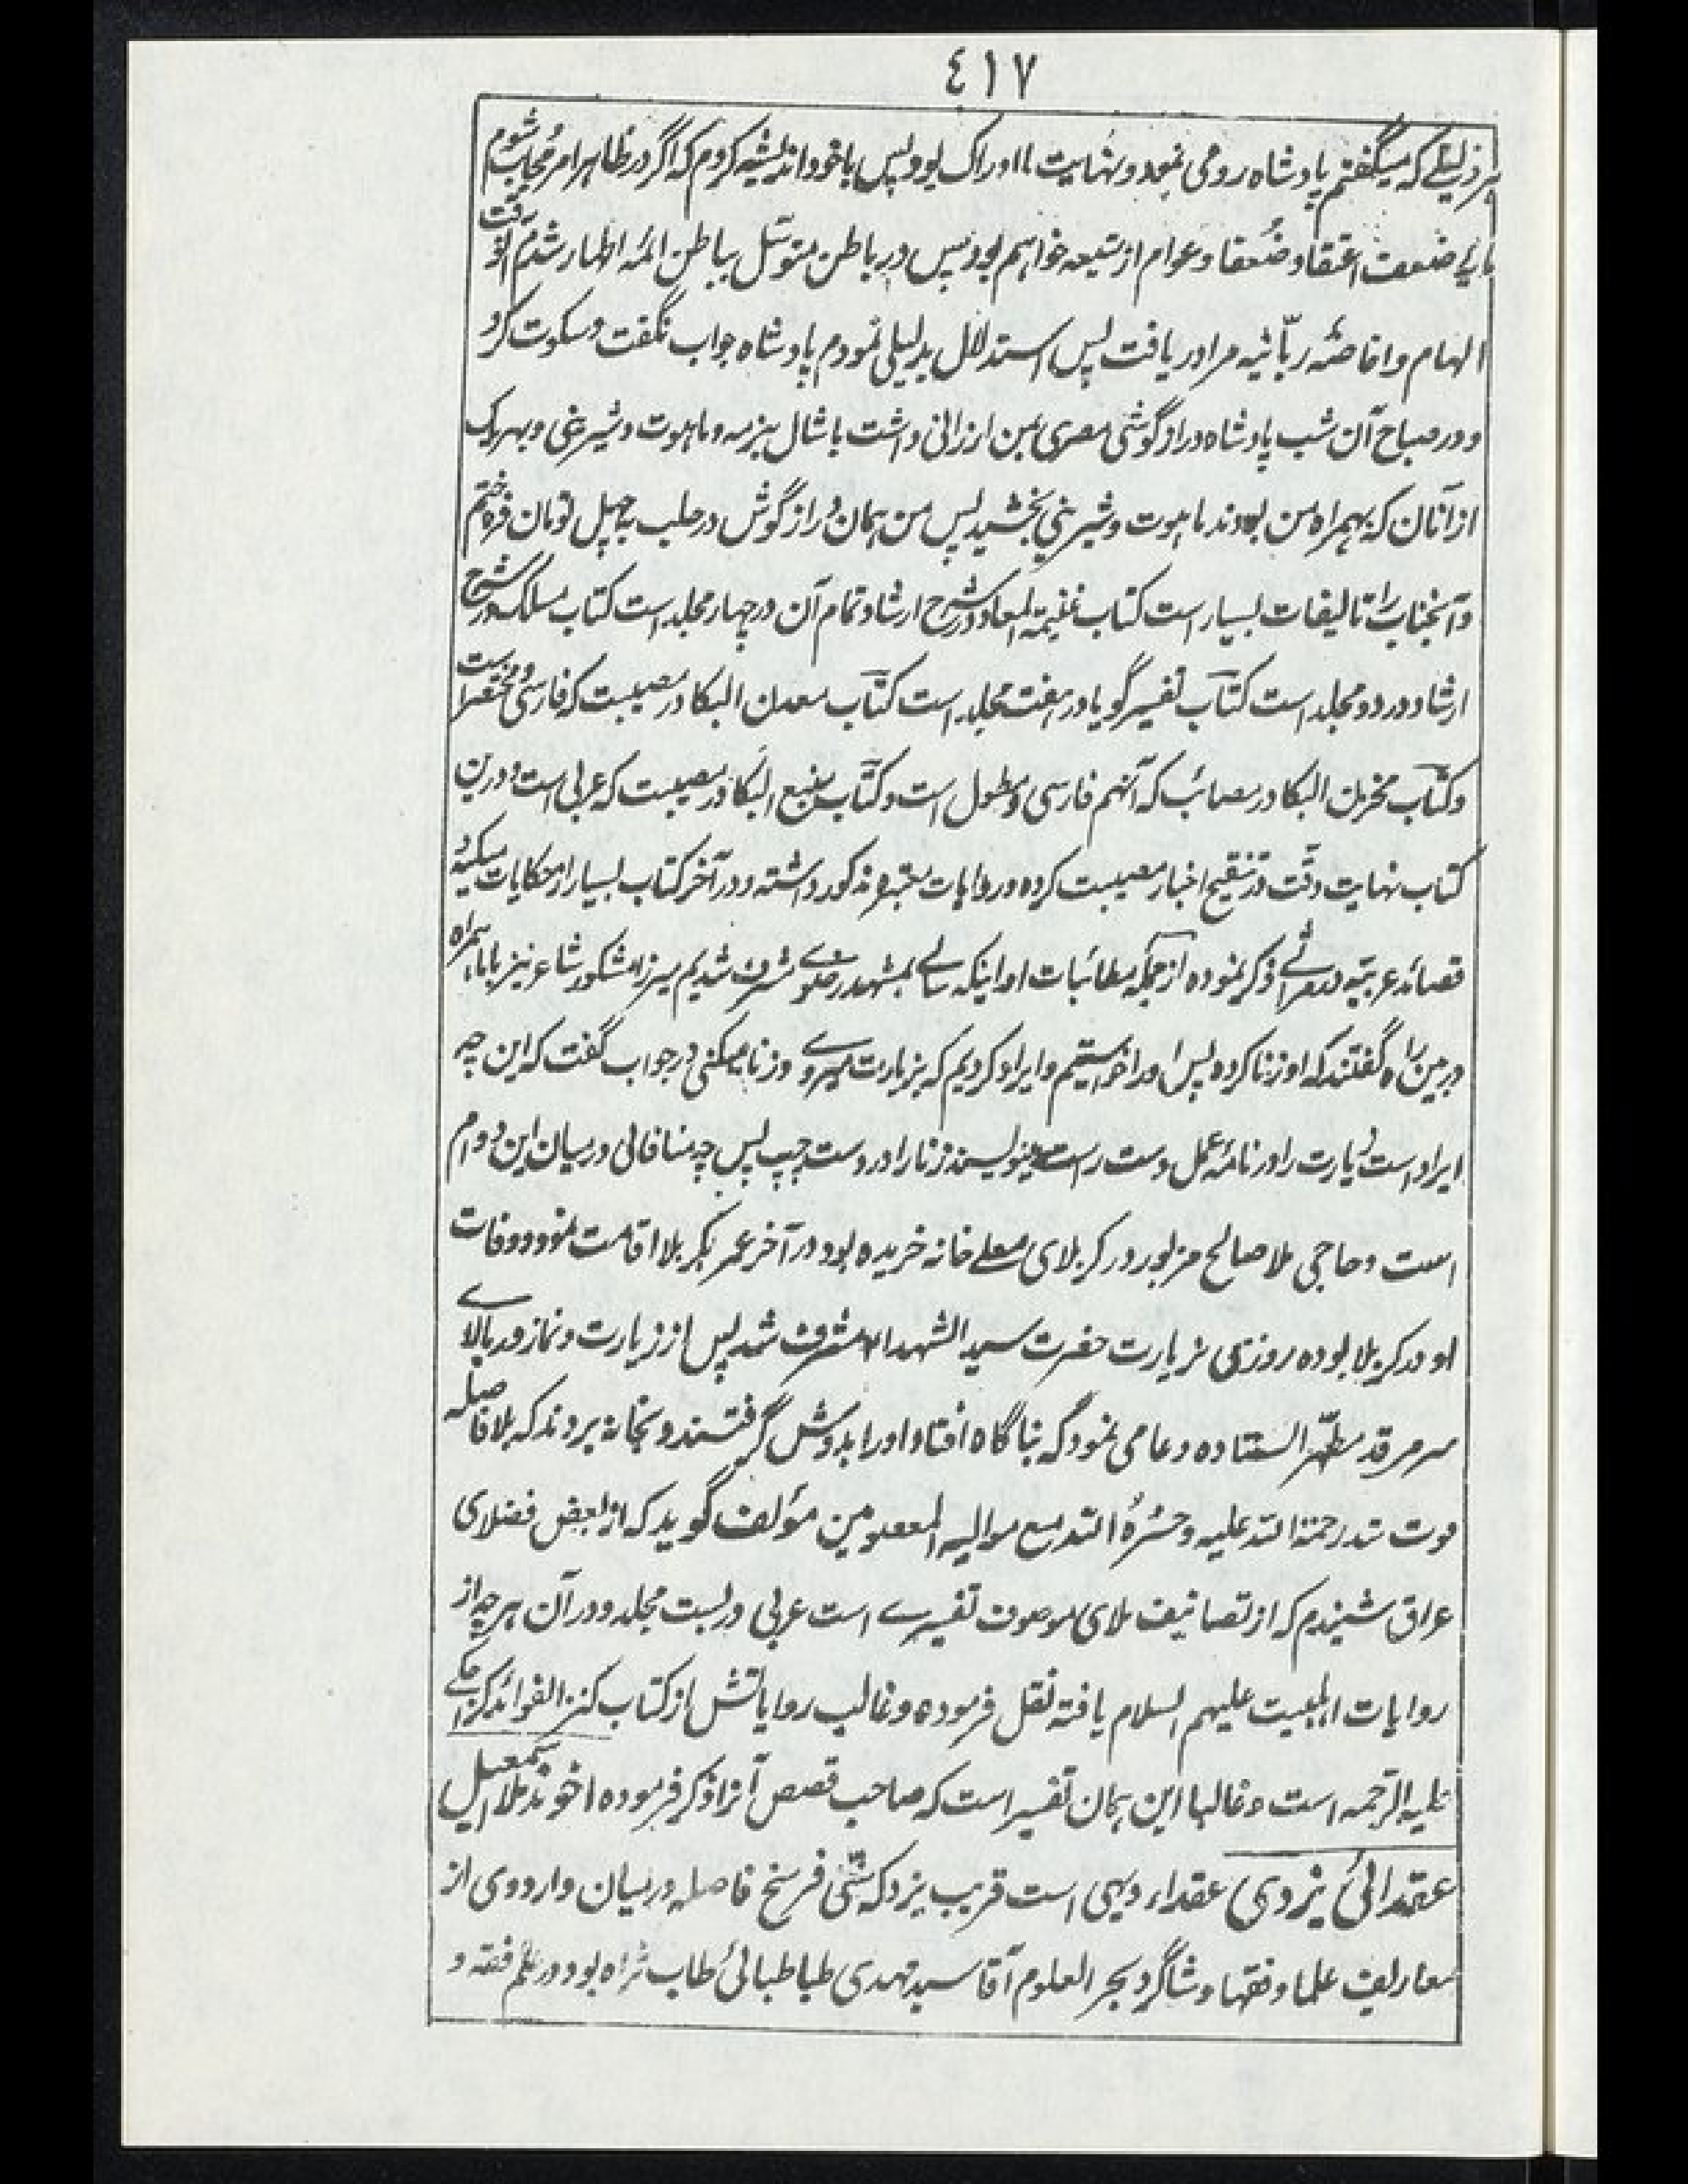 ٤١٧
هر دلیلے که میگفتم پادشاه رد می نمود و بنهایت با ادراک بود پس با خود اندیشه کردم که اگر در ظاهر امر مُجاب شوم
باعث ضعف اعتقاد ضُعفا و عوام از شیعه خواهم بود پس در باطن متوسّل بباطن ائمّه اطهار شدم
الهام و افاضهٔ ربّانیه مرا دریافت پس استدلال بدلیلی نمودم پادشاه جواب نگفت و سکوت کرد
و در صباح آن شب پادشاه دراز گوشی مصری بمن ارزانی داشت با شال ترمه و ماهوت و شیرینی و بهریک
از آنان که بهمراه من بودند ماهوت و شیرینی بخشید پس من همان دراز گوش در حلب بچهل تومان فروختم
و آنجناب را تالیفات بسیار است کتاب غنیمة المعاد در شرح ارشاد و تمام آن در چهار مجلد است کتاب مسلک در شرح
ارشاد در دو مجلد است کتاب تفسیر گویا در هفت مجلد است کتاب معدن البکا در مصیبت که فارسی و مختصر است
و کتاب مخزن البکا در مصائب که آنهم فارسی و مطول است و کتاب منبع البکا در مصیبت که عربی است و در این
کتاب نهایت دقّت در تنقیح اخبار مصیبت کرده و روایات معتبره مذکور داشته و در آخر کتاب بسیار از حکایات مبکیه و
قصائد عربیّه در مراثی ذکر نموده از جمله مطائبات او اینکه سالے بمشهد رضوے مشرف شدیم میرزا مشکور شاعر نیز با ما همراه
در بین راه گفتند که او زنا کرده پس او را خواستیم و ایراد کردیم که بزیارت میروے و زنا میکنی در جواب گفت که این چه
ایراد است زیارت را در نامهٔ عمل دست راست مینویسند و زنا را در دست چپ پس چه منافاتی درمیان این دو ام
است و حاجی ملا صالح مزبور در کربلای معلے خانه خریده بود در آخر عمر بکربلا اقامت نمود و وفات
او در کربلا بوده روزی بزیارت حضرت سید الشهداء مشرف شد پس از زیارت و نماز در بالاے
سر مرقد مطهّر ایستاده دعا می نمود که بناگاه افتاد او را بدوش گرفتند و بخانه بردند که بلا فاصله
فوت شد رحمة الله علیه و حشرهُ الله مع موالیه المعصومین مؤلف گوید که از بعض فضلای
عراق شنیدم که از تصانیف ملای موصوف تفسیرے است عربی در بست مجلد و در آن هر چه از
روایات اهلبیت علیهم السلام یافته نقل فرموده و غالب روایاتش از کتاب کنز الفوائد کراجکے
علیه الرحمه است و غالبا این همان تفسیر است که صاحب قصص آنرا ذکر فرموده اخوند ملا اسمعیل
عقدائی یزدی عقداء دیهی است قریب یزد که شش فرسخ فاصله درمیان دارد وی از
معاریف علما و فقها و شاگرد بحر العلوم آقا سید مهدی طباطبائی طاب ثراه بود در علم فقه و